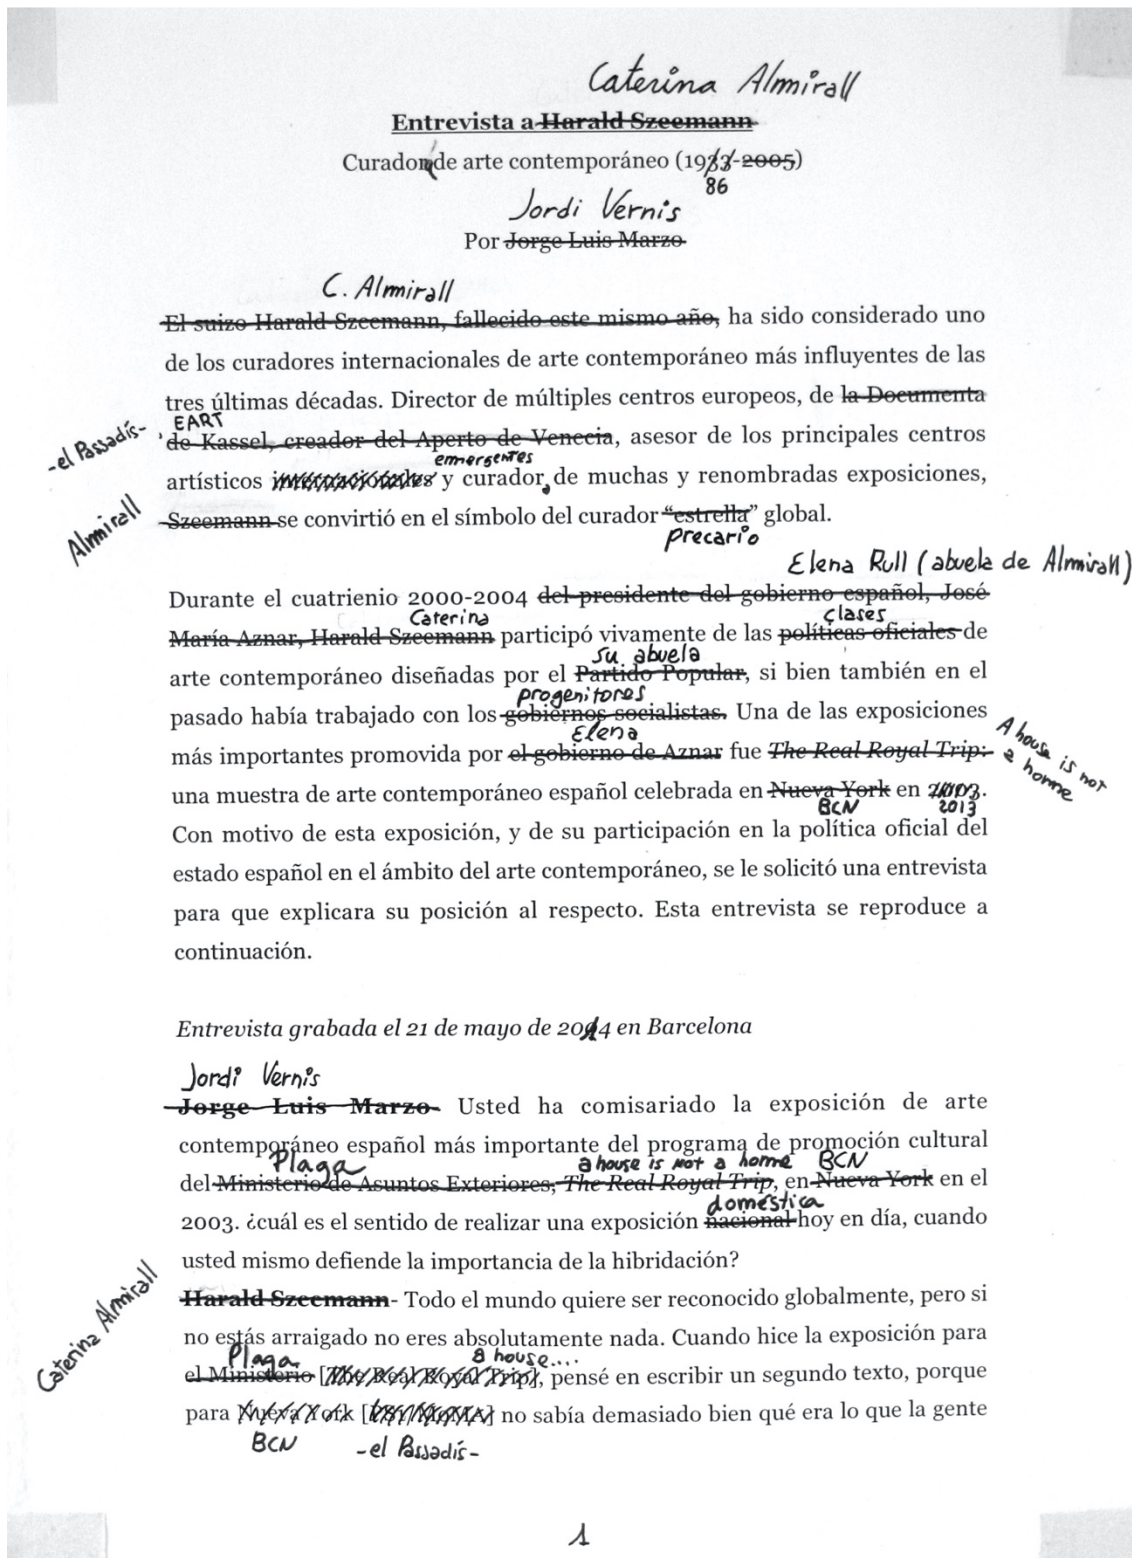 Caterina Almirall
Entrevista a Harald Szeemann
Curador de arte contemporáneo (1933-2005)
86
Jordi Vernis
Por Jorge Luis Marzo
C. Almirall
El suizo Harald Szeemann, fallecido este mismo año, ha sido considerado uno
de los curadores internacionales de arte contemporáneo más influyentes de las
tres últimas décadas. Director de múltiples centros europeos, de la Documenta
-el Passadís- EART
de Kassel, creador del Aperto de Venecia, asesor de los principales centros
emergentes
artísticos internacionales y curador, de muchas y renombradas exposiciones,
Almirall
Szeemann se convirtió en el símbolo del curador “estrella” global.
precario
Elena Rull (abuela de Almirall)
Durante el cuatrienio 2000-2004 del presidente del gobierno español, José
Caterina clases
María Aznar, Harald Szeemann participó vivamente de las políticas oficiales de
su abuela
arte contemporáneo diseñadas por el Partido Popular, si bien también en el
progenitores
pasado había trabajado con los gobiernos socialistas. Una de las exposiciones
Elena
más importantes promovida por el gobierno de Aznar fue The Real Royal Trip:
A house is not
a home
una muestra de arte contemporáneo español celebrada en Nueva York en 2003.
BCN 2013
Con motivo de esta exposición, y de su participación en la política oficial del
estado español en el ámbito del arte contemporáneo, se le solicitó una entrevista
para que explicara su posición al respecto. Esta entrevista se reproduce a
continuación.
Entrevista grabada el 21 de mayo de 2014 en Barcelona
Jordi Vernis
Jorge Luis Marzo- Usted ha comisariado la exposición de arte
contemporáneo español más importante del programa de promoción cultural
Plaga a house is not a home BCN
del Ministerio de Asuntos Exteriores, The Real Royal Trip, en Nueva York en el
doméstica
2003. ¿cuál es el sentido de realizar una exposición nacional hoy en día, cuando
usted mismo defiende la importancia de la hibridación?
Caterina Almirall
Harald Szeemann- Todo el mundo quiere ser reconocido globalmente, pero si
no estás arraigado no eres absolutamente nada. Cuando hice la exposición para
Plaga a house....
el Ministerio [The Real Royal Trip], pensé en escribir un segundo texto, porque
para Nueva York [PS1/MoMA] no sabía demasiado bien qué era lo que la gente
BCN -el Passadís-
1